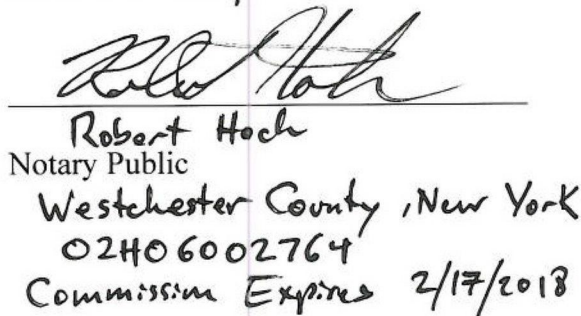 Robert Hoch
Robert Hoch
Notary Public
Westchester County, New York
02HO6002764
Commission Expires 2/17/2018